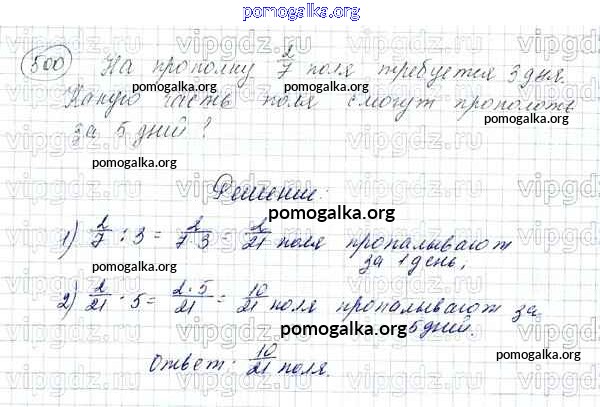 pomogalka.org
500 На прополку 2/7 поля требуется 3 дня.
Какую часть поля смогут прополоть
за 5 дний?
pomogalka.org pomogalka.org
Решение.
pomogalka.org
1) 2/7 : 3 = 2/7·3 = 2/21 поля пропалывают
за 1 день,
pomogalka.org pomogalka.org
2) 2/21 · 5 = 2·5/21 = 10/21 поля пропалывают за
5 дний.
pomogalka.org pomogalka.org
Ответ: 10/21 поля.
pomogalka.org pomogalka.org
vipgdz.ru